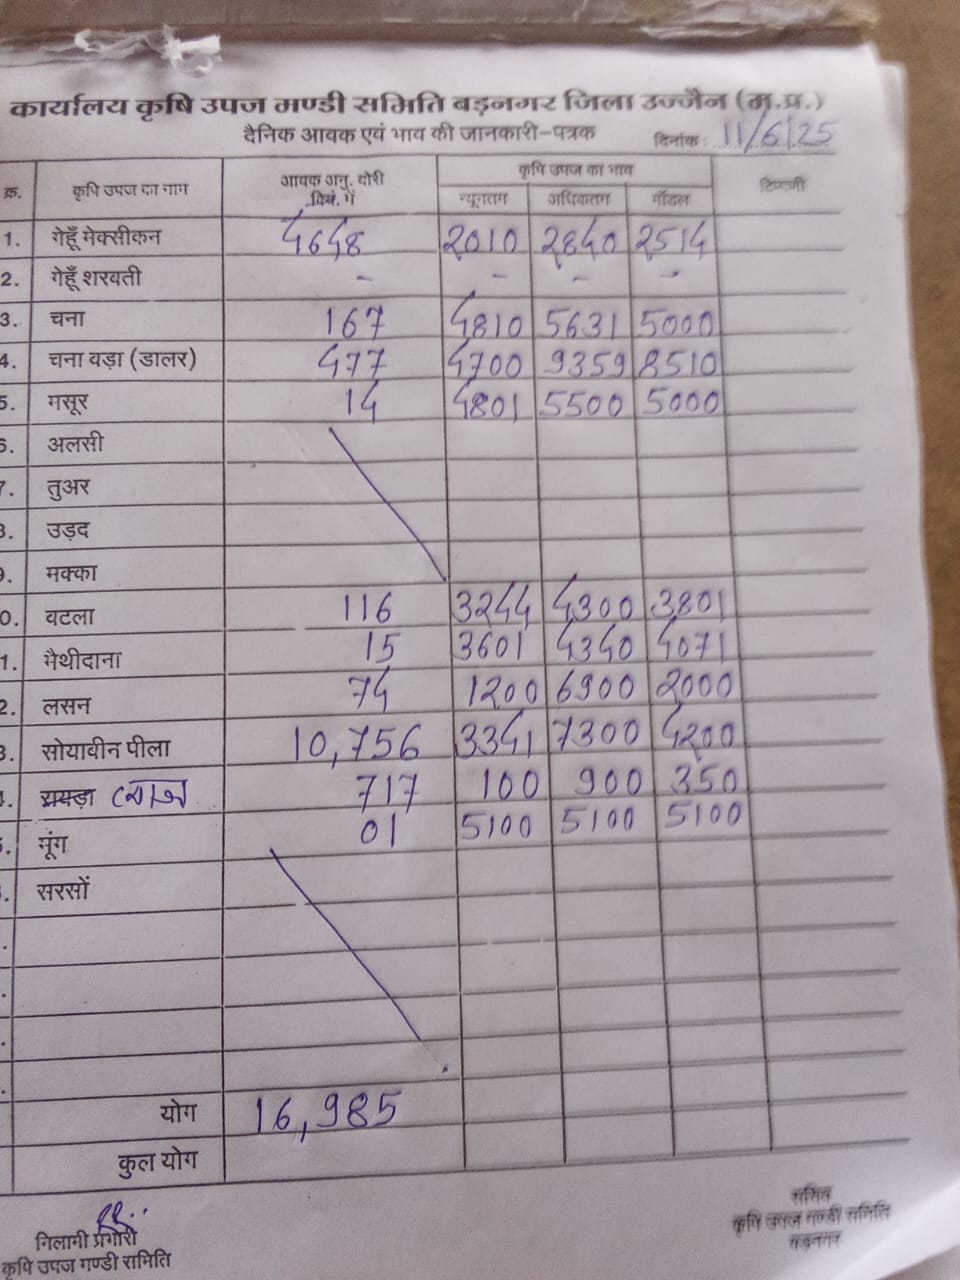 कार्यालय कृषि उपज मण्डी समिति बड़नगर जिला उज्जैन (म.प्र.)
दैनिक आवक एवं भाव की जानकारी-पत्रक दिनांक: 11/6/25
क्र. कृषि उपज का नाम आवक अनु. बोरी क्विं. में कृषि उपज का भाव टिप्पणी
न्यूनतम अधिकतम मॉडल
1. गेहूँ मेक्सीकन 4648 2010 2840 2514
2. गेहूँ शरबती - - - -
3. चना 167 4810 5631 5000
4. चना बड़ा (डालर) 477 4700 9359 8510
5. मसूर 14 4801 5500 5000
6. अलसी
7. तुअर
8. उड़द
9. मक्का
0. बटला 116 3244 4300 3801
1. मैथीदाना 15 3601 4340 4071
2. लसन 74 1200 6900 2000
3. सोयाबीन पीला 10,756 3341 7300 4200
रायड़ा 717 100 900 350
5. मूंग 01 5100 5100 5100
सरसों
योग 16,985
कुल योग
निलामी प्रभारी
कृषि उपज मण्डी समिति
सचिव
कृषि उपज मण्डी समिति
बड़नगर